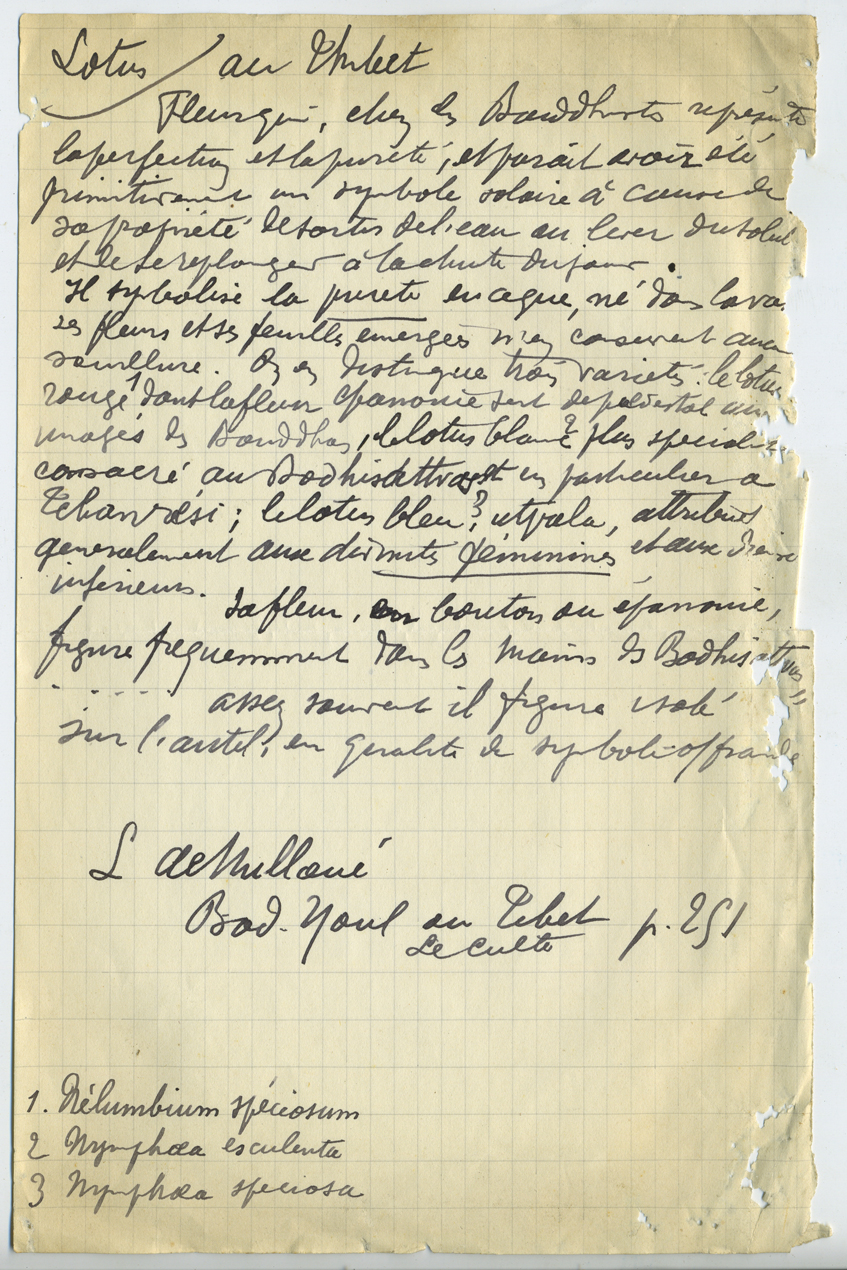 Lotus / au Thibet
Fleur qui, chez les Bouddhistes représente
la perfection et la pureté, et paraît avoir été
primitivement un symbole solaire à cause de
sa propriété de sortir de l'eau au lever du soleil
et de se replonger à la chute du jour.
Il symbolise la pureté en ce que, né dans la va
ses fleurs et ses feuilles émergées n'en conservent aucu
souillure. On en distingue trois variétés : le lotus
rouge 1 dont la fleur épanouie sert de piédestal aux
images des Bouddhas, le lotus blanc 2 plus spécial
consacré au Bodhisattvas et en particulier a
Tchanrési ; le lotus bleu 3, utpala, attribué
généralement aux divinités féminines et aux dieux
inférieurs.
Sa fleur, en bouton ou épanouie,
figure fréquemment dans les mains des Bodhisattvas"
. . . . . assez souvent il figure isolé
sur l'autel, en qualité de symbole-offrande
L de Milloué
Bod-Youl ou Tibet p. 251
Le culte
1. Nélumbium spéciosum
2 Nymphæa esculenta
3 Nymphæa speciosa